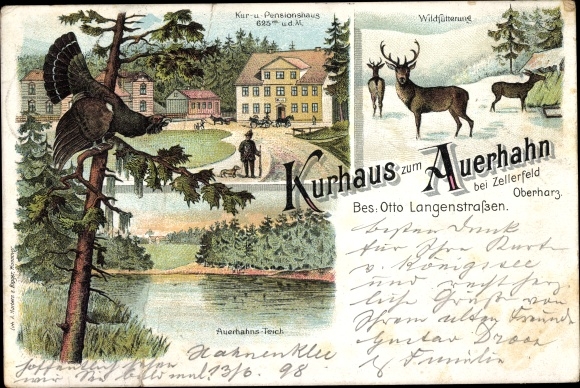 Kur- u. Pensionshaus
625m ü.d.M.
Wildfütterung
Kurhaus zum Auerhahn
bei Zellerfeld
Oberharz.
Bes: Otto Langenstraßen.
Auerhahns-Teich
besten Dank
für Ihre Karte
v. Königssee
und recht herz
liche Grüße von
Ihrem alten Freunde
Gustav
& Familie
Hahnenklee
13/6. 98
hoffentlich sehen
wir Sie bald mal